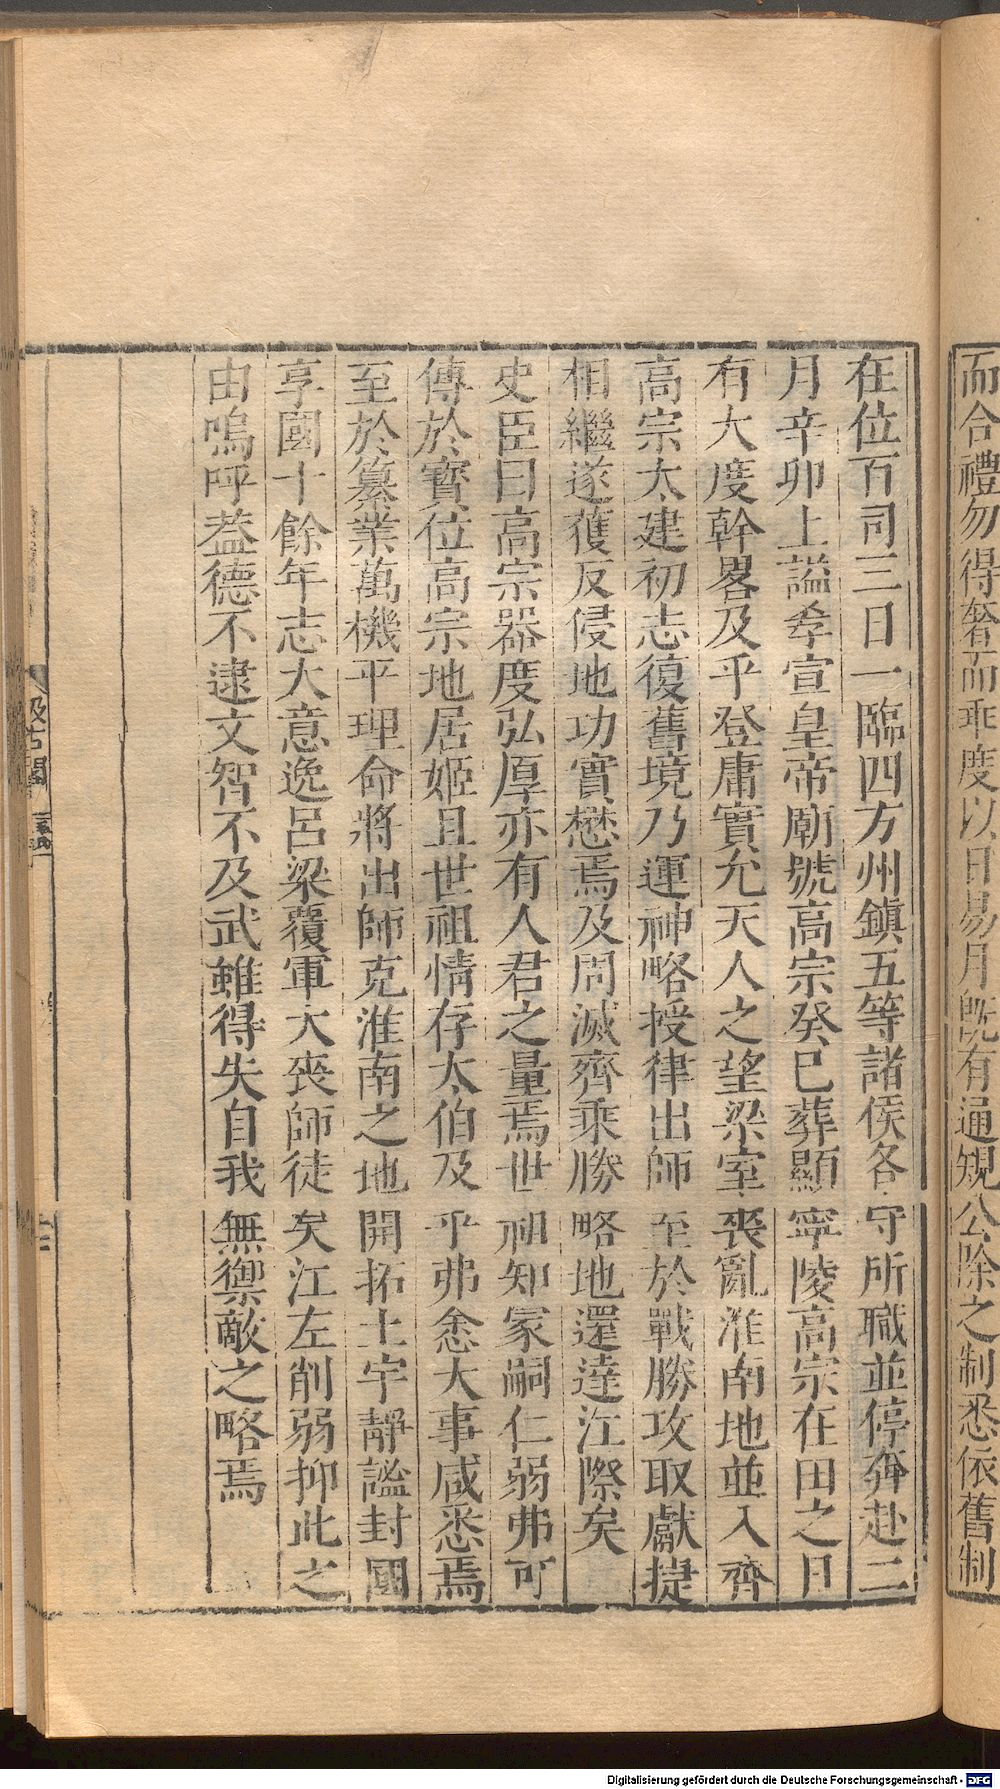 而合禮勿得奢而乖度以日易月旣有通規公除之制悉依舊制
在位百司三日一臨四方州鎮五等諸侯各守所職並停奔赴二
月辛卯上謚孝宣皇帝廟號高宗癸巳葬顯寧陵高宗在田之日
有大度幹畧及乎登庸實允天人之望梁室喪亂淮南地並入齊
高宗太建初志復舊境乃運神略授律出師至於戰勝攻取獻捷
相繼遂獲反侵地功實懋焉及周滅齊乘勝略地還達江際矣
史臣曰高宗器度弘厚亦有人君之量焉世祖知冢嗣仁弱弗可
傳於寶位高宗地居姬旦世祖情存太伯及乎弗悆大事咸悉焉
至於纂業萬機平理命將出師克淮南之地開拓土宇靜謐封國
享國十餘年志大意逸呂梁覆軍大喪師徒矣江左削弱抑此之
由嗚呼葢德不逮文智不及武雖得失自我無禦敵之略焉
汲古閣
Digitalisierung gefördert durch die Deutsche Forschungsgemeinschaft - DFG